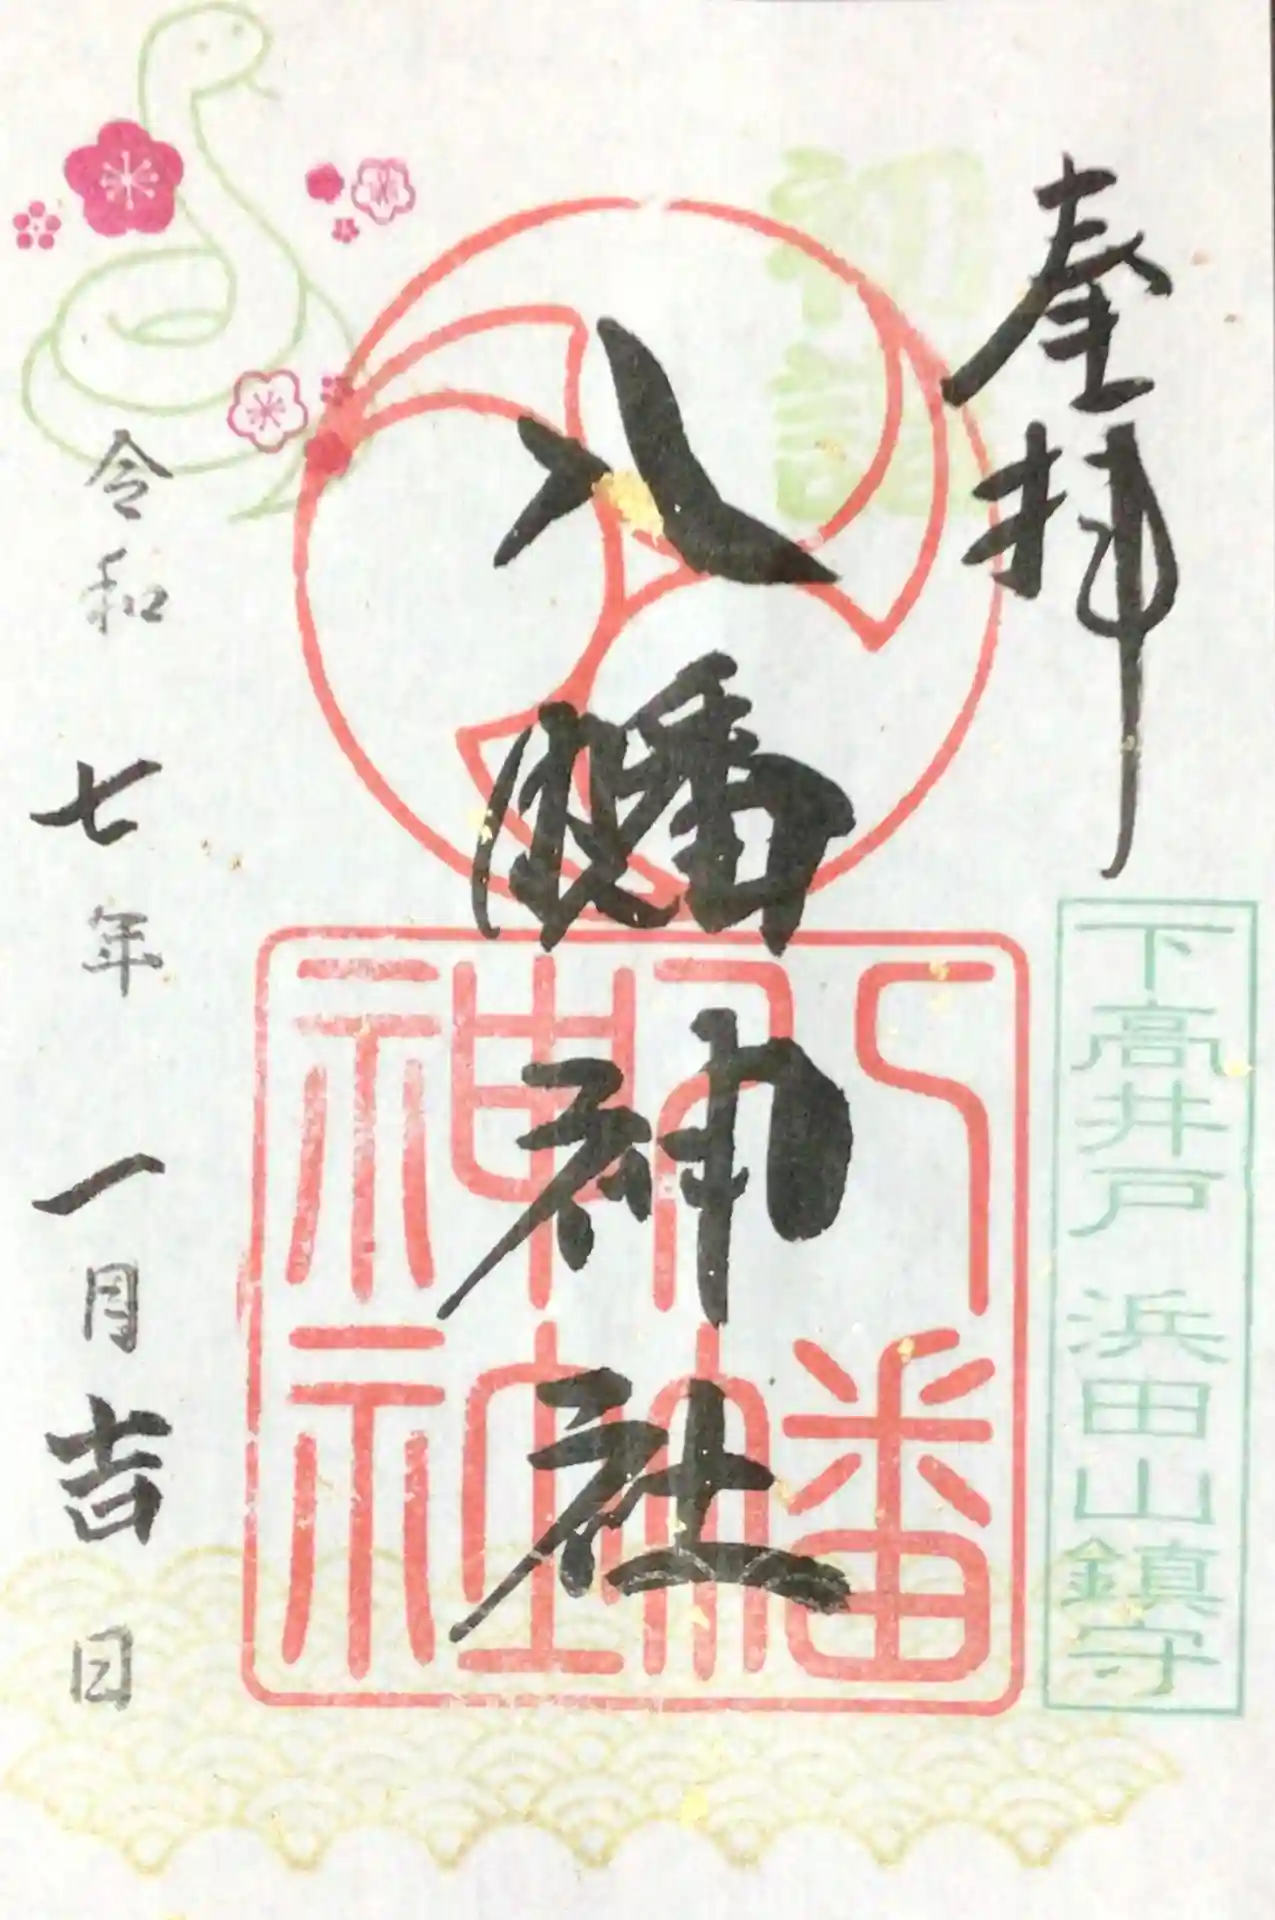 奉拝
初詣
下高井戸 浜田山鎮守
八幡神社
八幡神社
令和 七年 一月吉日